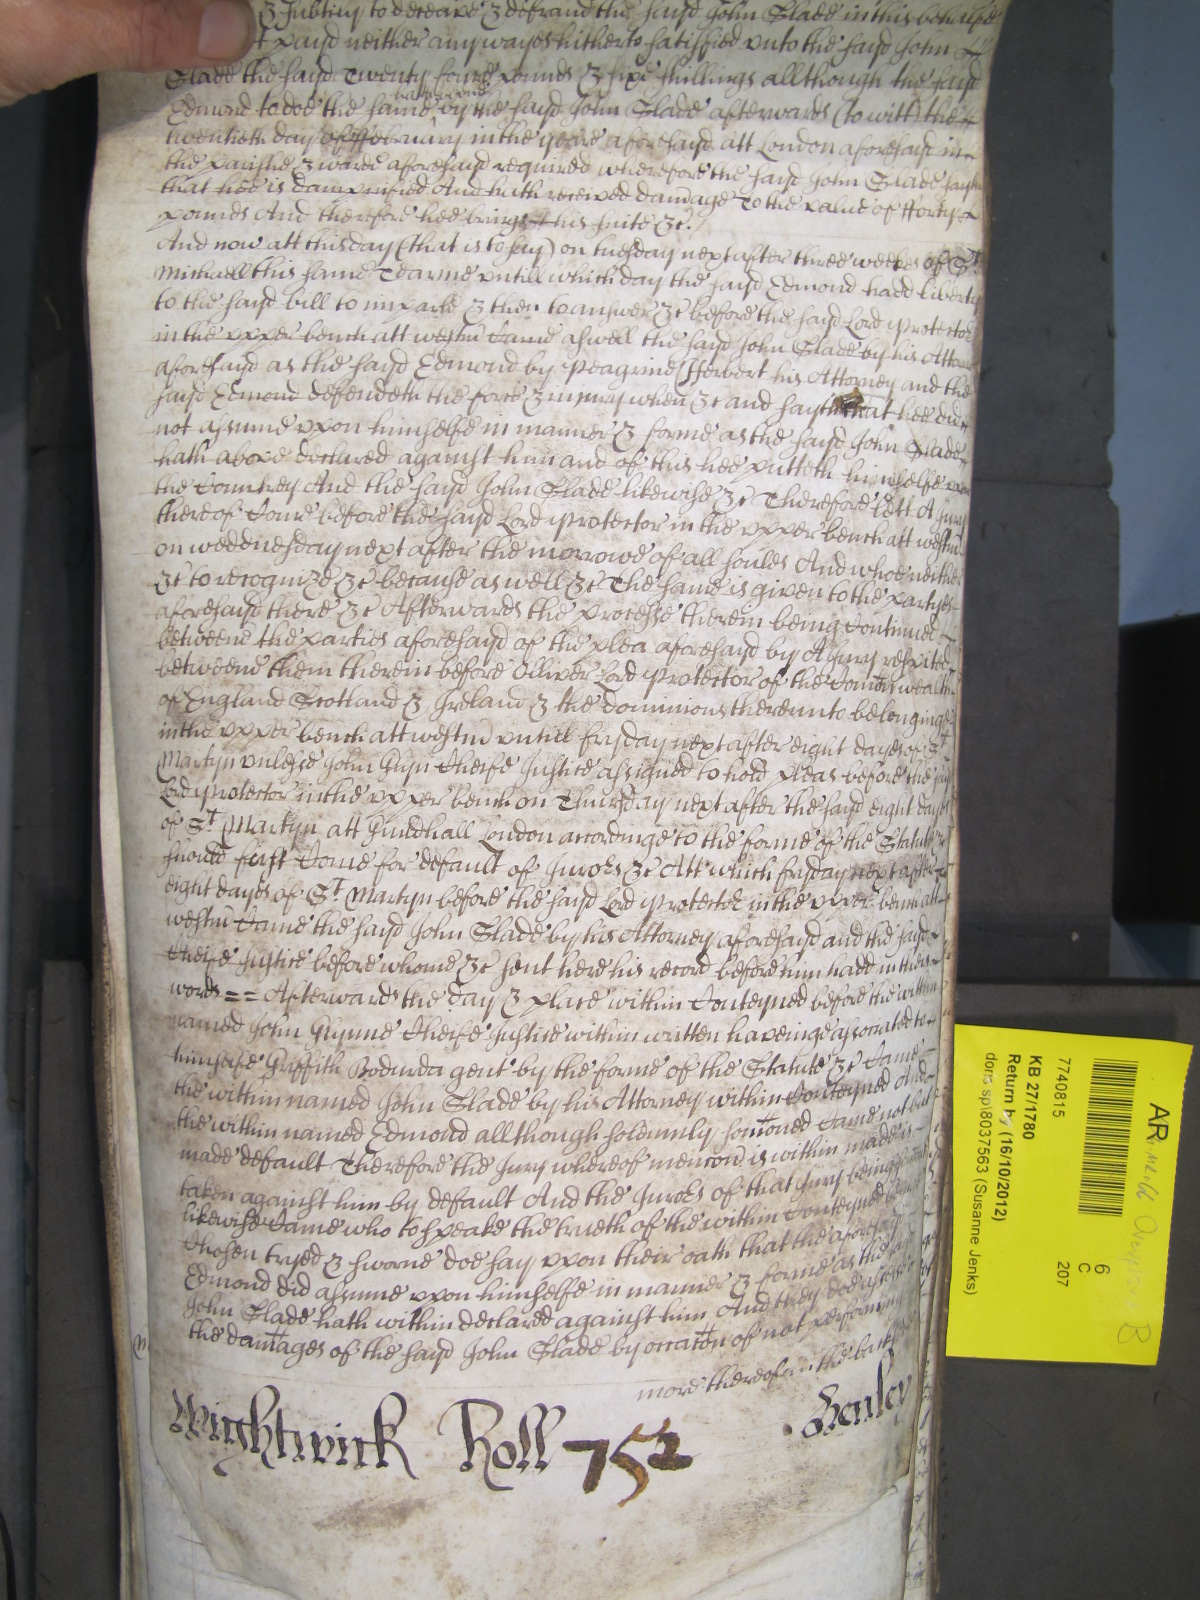 & subtiny to deceave & defraud the sayd John Slade in this behalfe
t payd neither any wayes hitherto satisfied unto the sayd John
Slade the sayd Twenty foure pounds & six shillings allthough the sayd
Edmond to doe the same by the sayd John Slade afterwards (to witt) the
twentieth day of ffebruary in the yeare aforesayd att London aforesayd in
the parishe & warde aforesayd required wherefore the sayd John Slade sayth
that hee is dampnified And hath received damage To the value of fforty
pounds And therefore hee brings his suite &c.
And now att this day (that is to say) on tuesday next after three weekes of St
Michaell this same Tearme untill which day the sayd Edmond hadd liberty
to the sayd bill to imparle & then to answer &c before the sayd Lord protector
in the upper bench att westm Came aswell the sayd John Slade by his Attorney
aforesayd as the sayd Edmond by Peagrine Herbert his Attorney and the
sayd Edmond defendeth the force & injury when &c and sayth that hee did
not assume upon himselfe in manner & forme as the sayd John Slade
hath above declared against him and of this hee putteth himselfe upon
the Countrey And the sayd John Slade likewise &c Therefore lett A Jury
thereof Come before the sayd Lord protector in the upper bench att westm
on wedensday next after the morrowe of all soules And whoe neither
&c to recognize &c because as well &c The same is given to the partyes
aforesayd there &c Afterwards the processe therein being Continued
betweene the parties aforesayd of the plea aforesayd by A Jury respited
betweene them therein before Olliver Lord protector of the Comonwealth
of England Scotland & Ireland & the dominions thereunto belonginge
in the upper bench att westm untill fryday next after eight dayes of St
Martyn unlesse John Glyn Cheife Justice assigned to hold pleas before the
Lord protector in the upper bench on Thursday next after the sayd eight dayes
of St Martyn att Guildhall London accordinge to the forme of the Statute
should first Come for default of Jurors &c Att which fryday next after
eight dayes of St Martyn before the sayd Lord protector in the upper bench att
westm Came the sayd John Slade by his Attorney aforesayd and the sayd
Cheife Justice before whome &c sent here his record before him hadd in these
words == Afterwards the day & place within Conteyned before the within
named John Glynne Cheife Justice within written haveinge associated to
himselfe Griffith Bodurda gent by the forme of the Statute &c Came
the within named John Slade by his Attorney within Conteyned And
the within named Edmond allthough solemnly somoned Came not but
made default Therefore the Jury whereof mencon is within made is
taken against him by default And the Jurors of that Jury being
likewise Came who to speake the trueth of the within Conteyned being
Chosen tryed & sworne doe say uppon their oath that the aforesayd
Edmond did assume upon himselfe in manner & forme as the
John Slade hath within declared against him And they doe assesse
the damages of the sayd John Slade by occacon of not performing
more thereof on the back
Wightwick Roll 752 Henley
AR
7740815
KB 27/1780
Return by (16/10/2012)
(Susanne Jenks)
6
C
207